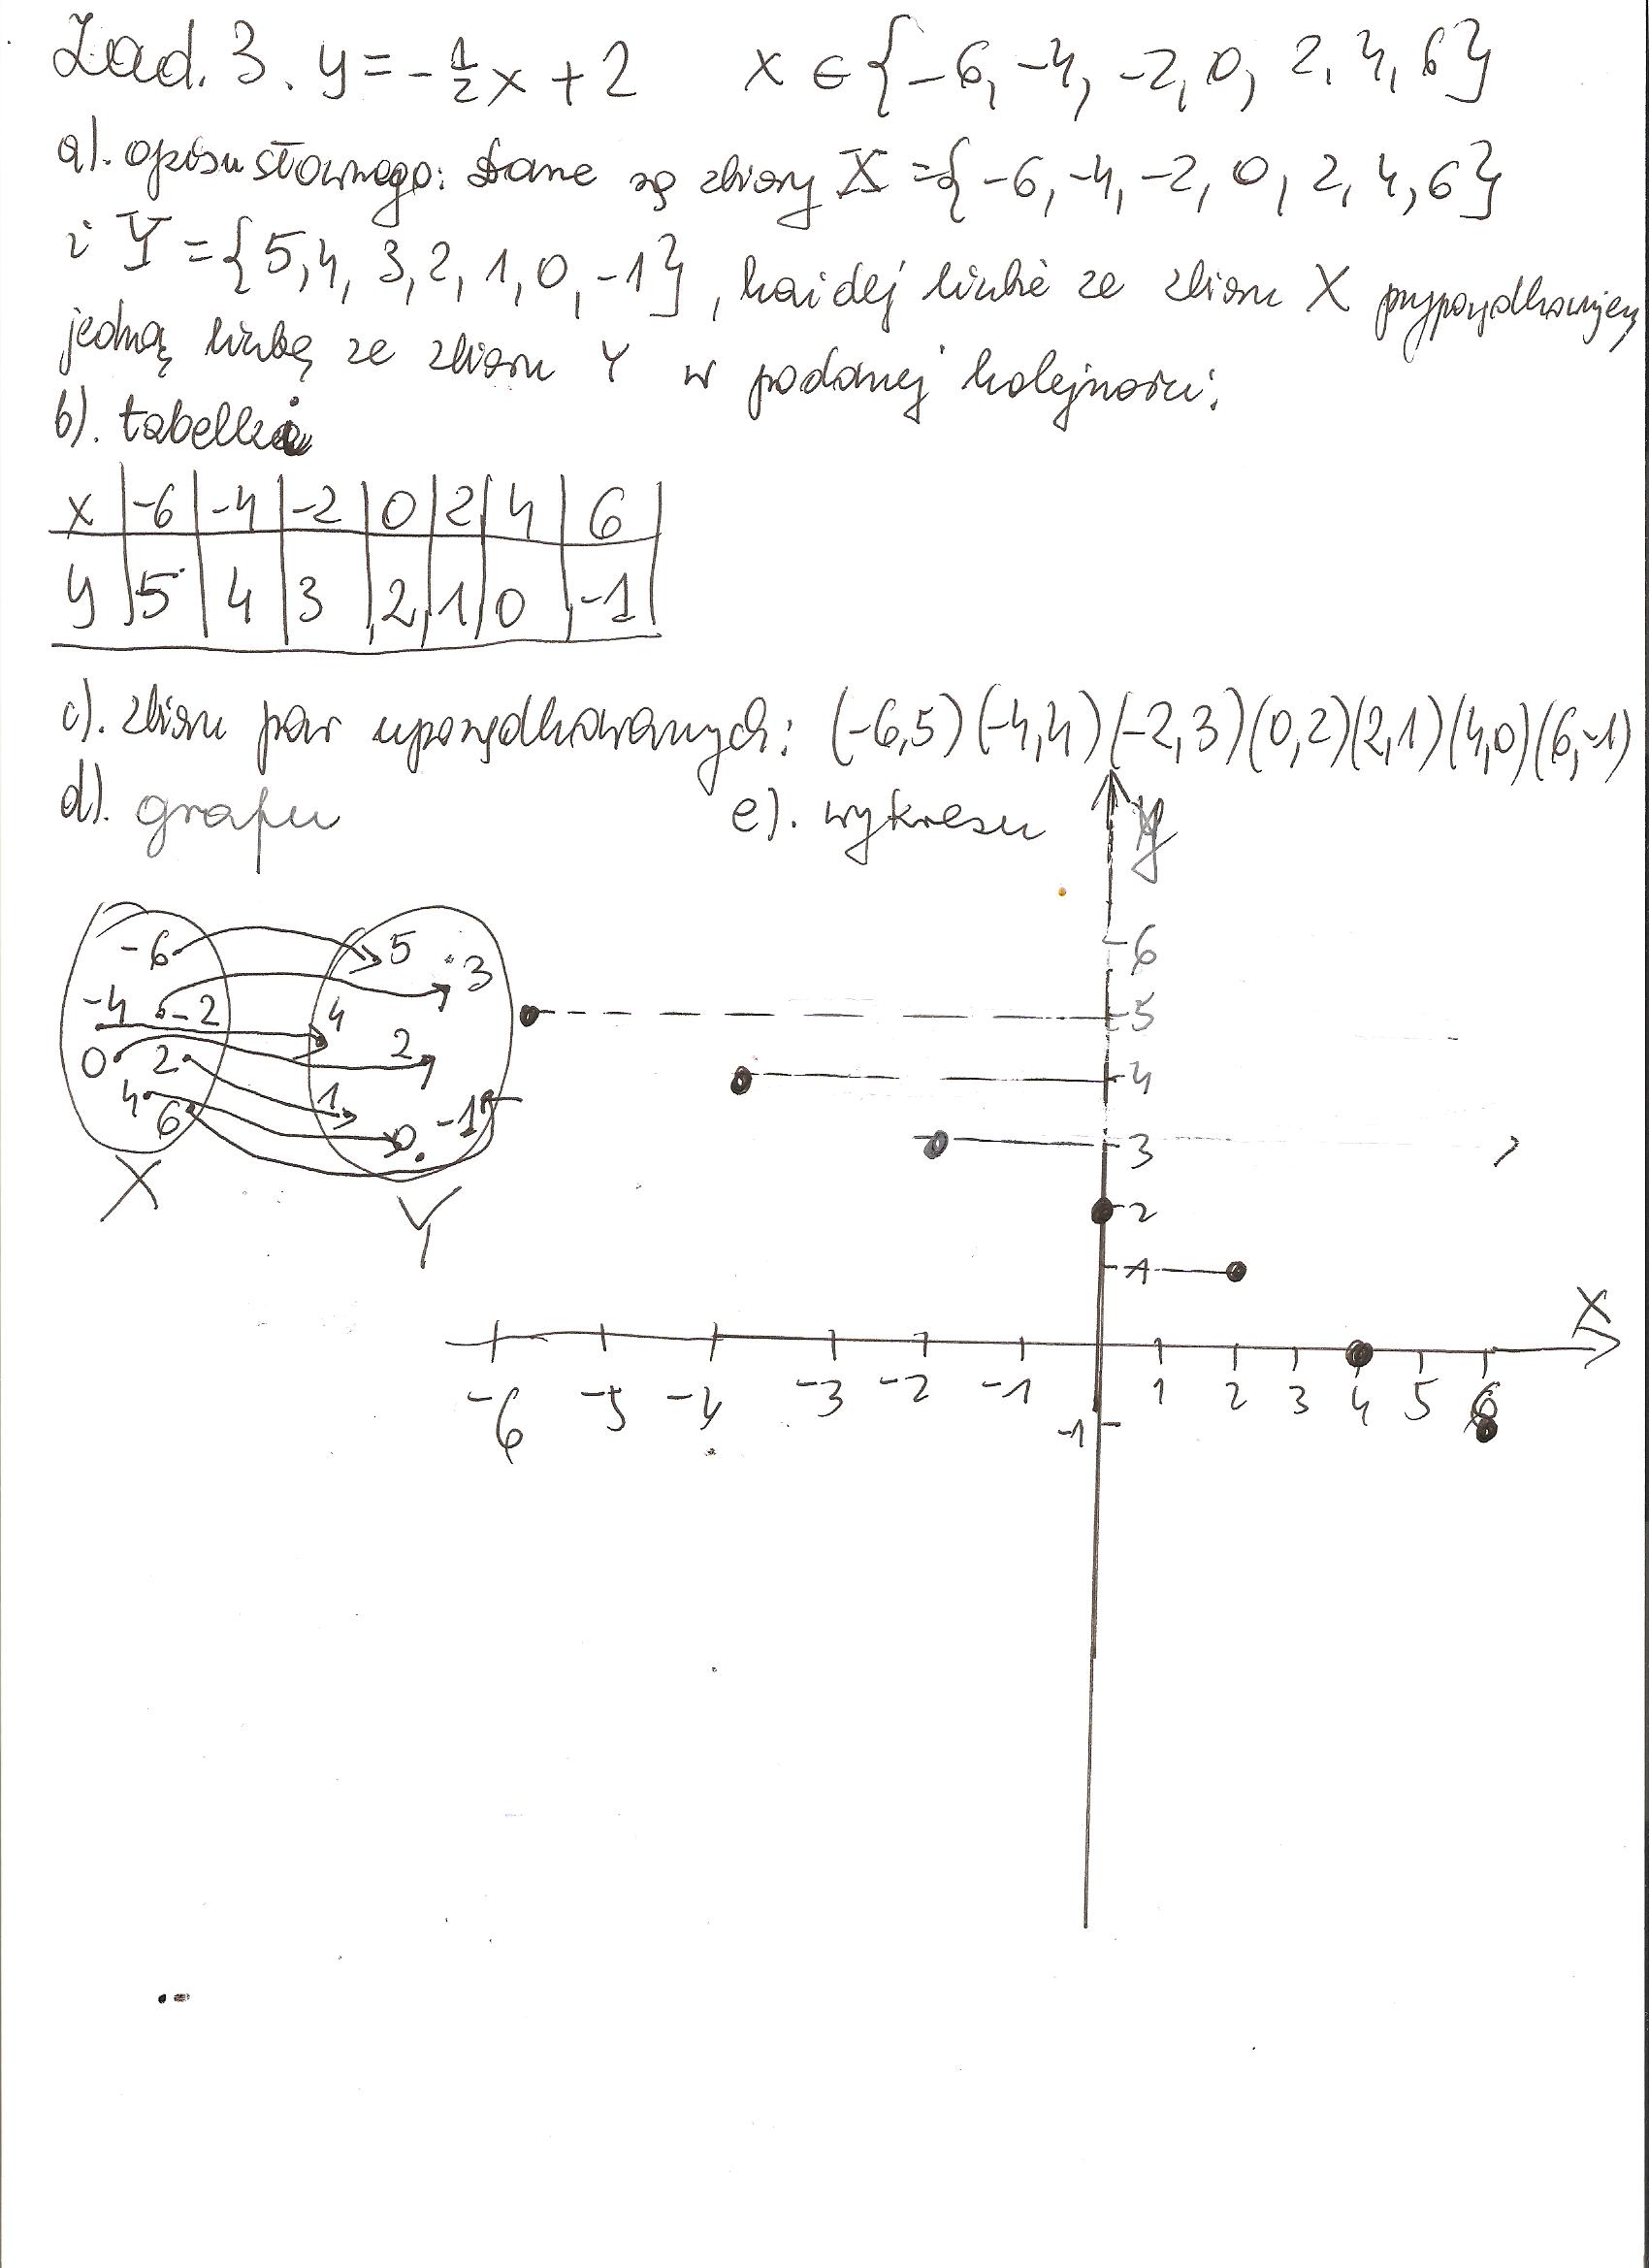 Zad. 3. y = -1/2 x + 2 x ∈ {-6, -4, -2, 0, 2, 4, 6}
a). opisu słownego: Dane są zbiory X = {-6, -4, -2, 0, 2, 4, 6}
i Y = {5, 4, 3, 2, 1, 0, -1}, każdej liczbie ze zbioru X przyporządkowujemy
jedną liczbę ze zbioru Y w podanej kolejności:
b). tabelki
x | -6 | -4 | -2 | 0 | 2 | 4 | 6
y | 5 | 4 | 3 | 2 | 1 | 0 | -1
c). zbioru par uporządkowanych: (-6,5) (-4,4) (-2,3) (0,2) (2,1) (4,0) (6,-1)
d). grafu e). wykresu y
-6 5 3
-4 -2 4
0 2 2
4 6 1 0 -1
X Y
6
5
4
3
2
1
X
-6 -5 -4 -3 -2 -1 1 2 3 4 5 6
-1